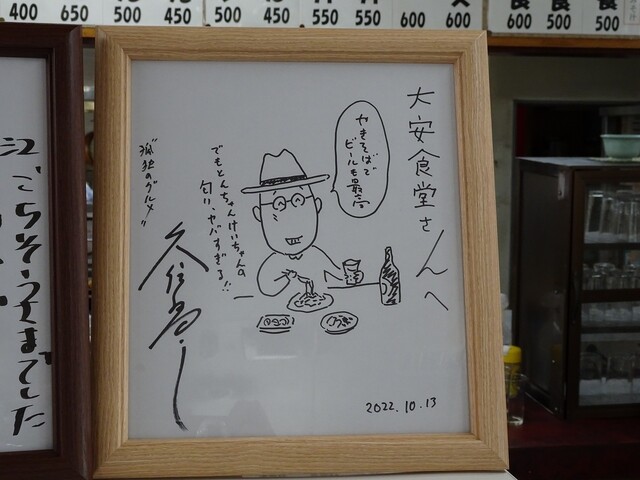 400 650 500 450 500 450 550 550 600 600
600 500 500
大安食堂さんへ
やきそばで
ビールも最高
でもとんちゃんけいちゃんの
匂い、ヤバすぎる!!
"孤独のグルメ"
久住昌之
2022.10.13
ごちそうさまでした